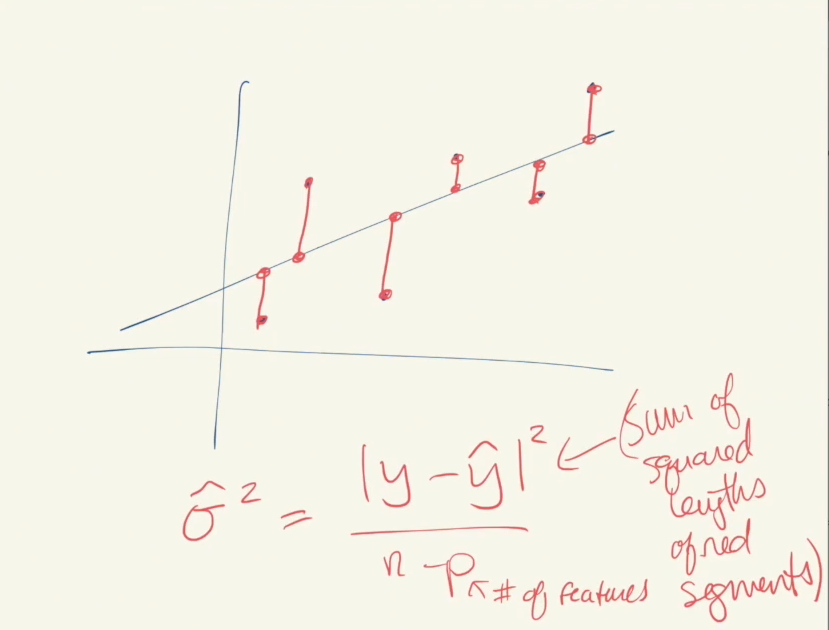 σ̂² = |y - ŷ|² / n - p
(sum of
squared
lengths
of red
segments)
# of features